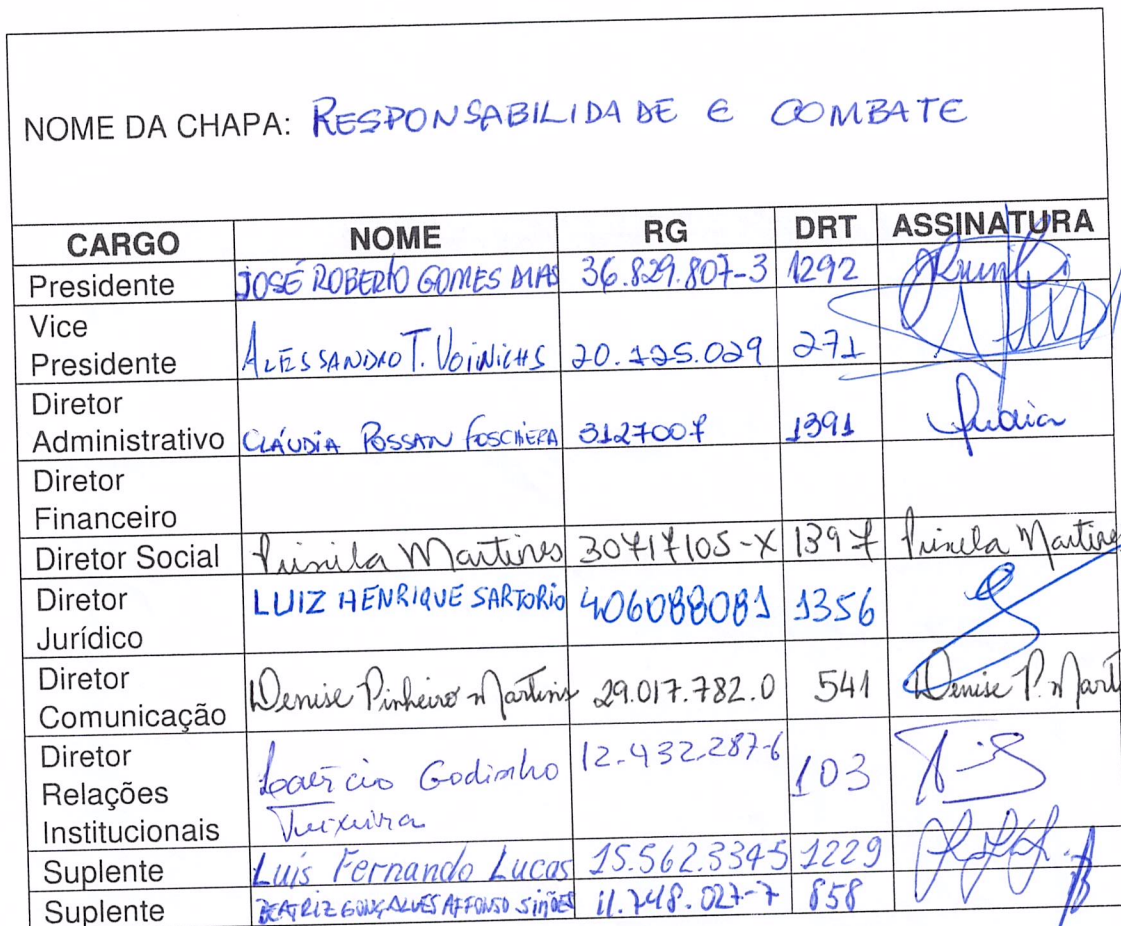 NOME DA CHAPA: RESPONSABILIDADE E COMBATE
CARGO NOME RG DRT ASSINATURA
Presidente JOSÉ ROBERTO GOMES DIAS 36.829.807-3 1292
Vice
Presidente ALESSANDRO T. 271
Diretor
Administrativo CLÁUDIA POSSAN FOSCHIERA 3127007 1391
Diretor
Financeiro
Diretor Social Martines 30717105-X 1397 Martines
Diretor LUIZ HENRIQUE SARTORIO 406088081 1356
Jurídico
Diretor
Comunicação Denise Pinheiro Martins 29.017.782.0 541 Denise P. Mart
Diretor
Relações Laércio Godinho 12.432.287-6 103
Institucionais Teixeira
Suplente Luís Fernando Lucas 15.562.3345 1229
Suplente BEATRIZ GONÇALVES AFFONSO SIMÕES 11.748.027-7 858